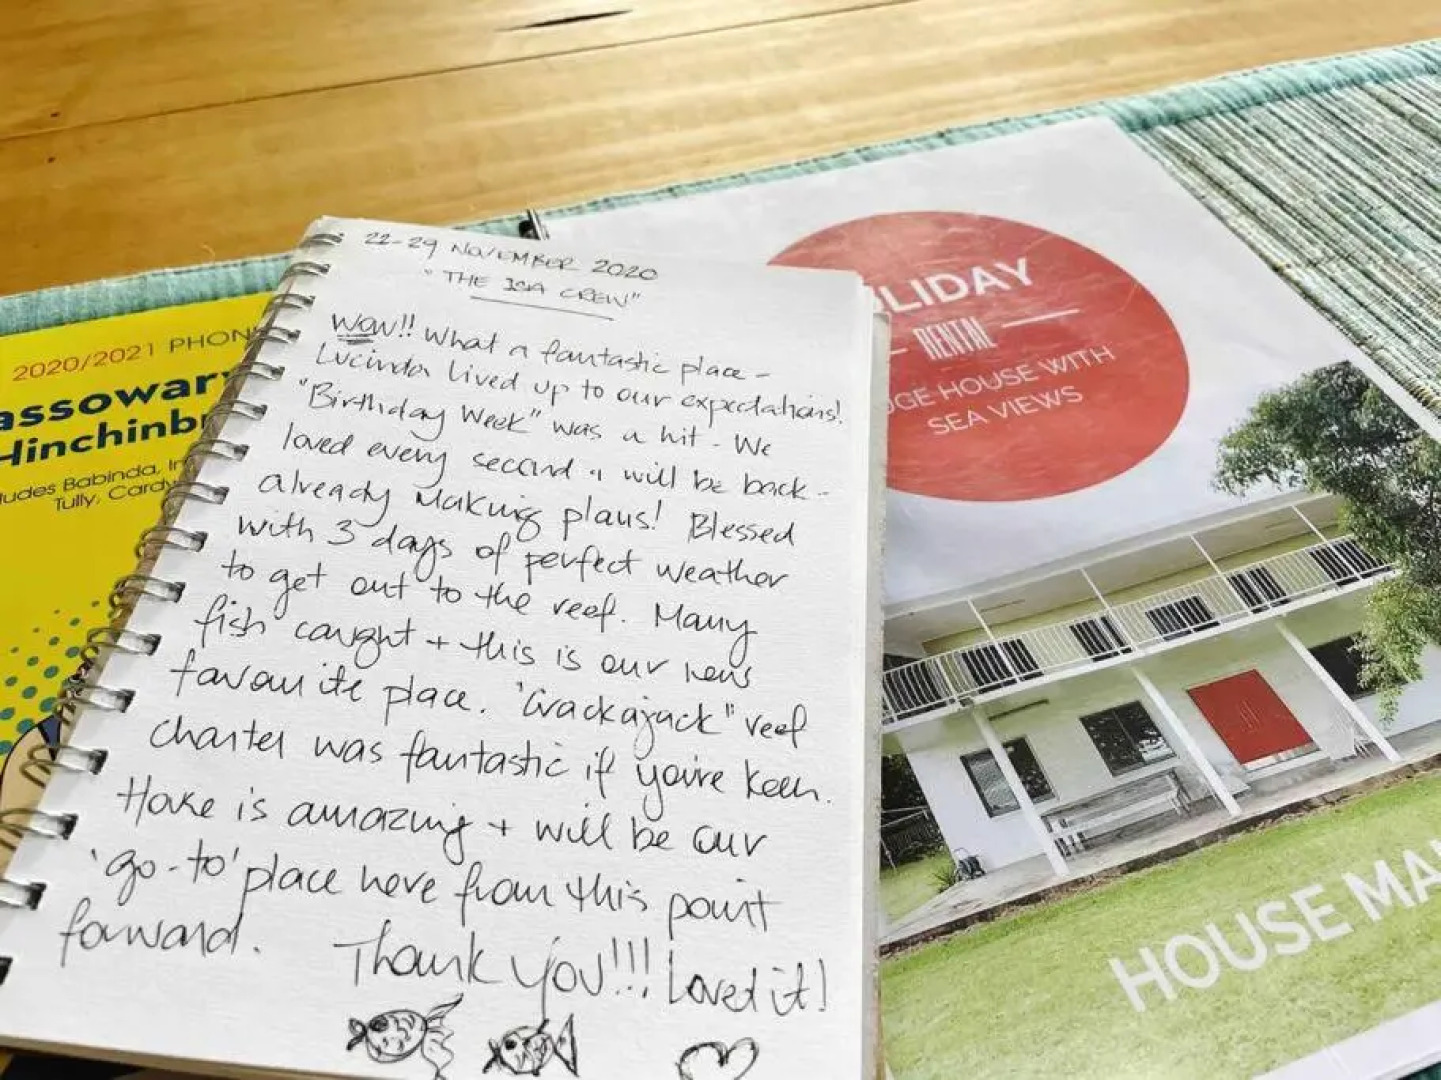 22-29 NOVEMBER 2020
"THE ISA CREW"
Wow!! What a fantastic place -
Lucinda lived up to our expectations!
"Birthday Week" was a hit - We
loved every second & will be back -
already making plans! Blessed
with 3 days of perfect weather
to get out to the reef. Many
fish caught + this is our new
favourite place. "Crackajack" reef
charter was fantastic if you're keen.
House is amazing + will be our
'go-to' place here from this point
forward. Thank you!!! Loved it!
2020/2021 PHON
assowary
Hinchinbr
ludes Babinda, In
Tully, Cardw
OLIDAY
RENTAL
UGE HOUSE WITH
SEA VIEWS
HOUSE MA